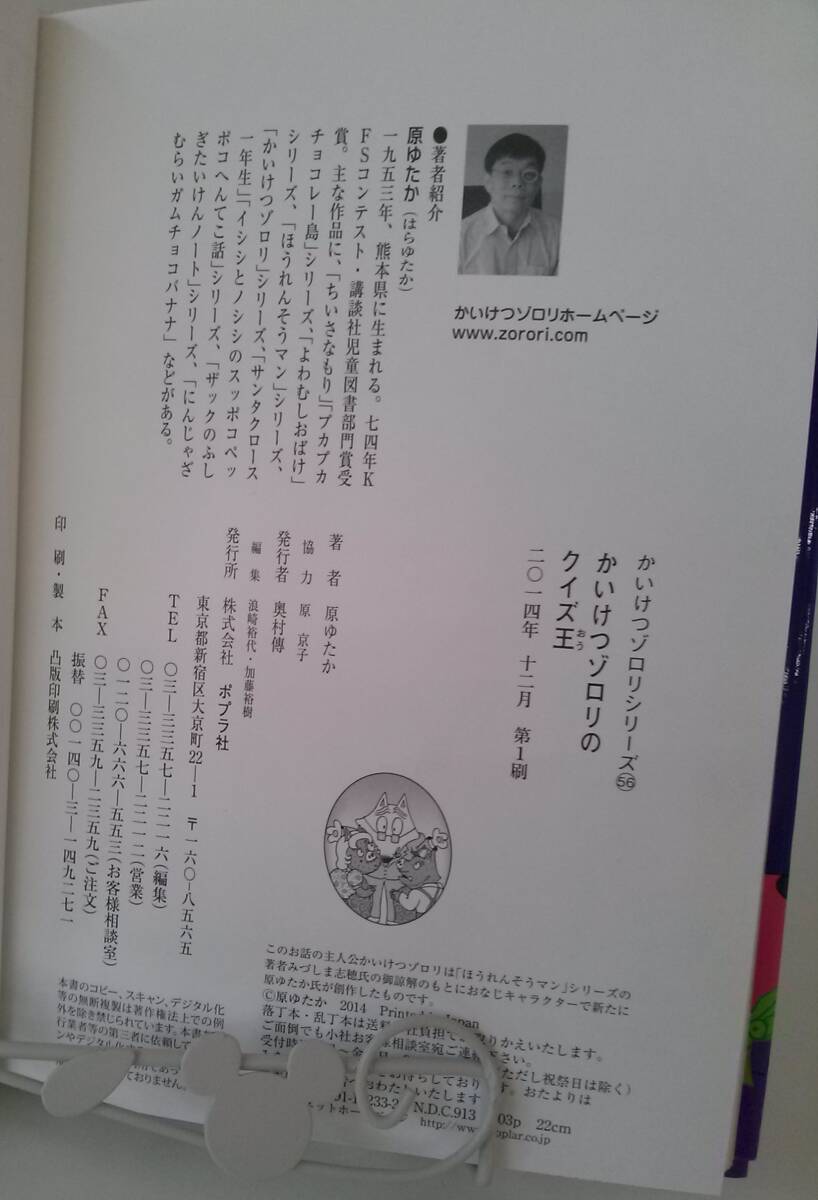 ●著者紹介
原ゆたか（はらゆたか）
一九五三年、熊本県に生まれる。七四年K
FSコンテスト・講談社児童図書部門賞受
賞。主な作品に、「ちいさなもり」「プカプカ
チョコレー島」シリーズ、「よわむしおばけ」
シリーズ、「ほうれんそうマン」シリーズ、
「かいけつゾロリ」シリーズ、「サンタクロース
一年生」「イシシとノシシのスッポコペッ
ポコへんてこ話」シリーズ、「ザックのふし
ぎたいけんノート」シリーズ、「にんじゃざ
むらいガムチョコバナナ」などがある。
かいけつゾロリホームページ
www.zorori.com
かいけつゾロリシリーズ56
かいけつゾロリの
クイズ王
おう
二〇一四年 十二月 第1刷
著者 原ゆたか
協力 原 京子
発行者 奥村傳
編集 浪崎裕代・加藤裕樹
発行所 株式会社 ポプラ社
東京都新宿区大京町22―1 〒一六〇―八五六五
TEL 〇三―三三五七―二二一六（編集）
〇三―三三五七―二二一二（営業）
〇一二〇―六六六―五五三（お客様相談室）
FAX 〇三―三三五九―二三五九（ご注文）
振替 〇〇一四〇―三―一四九二七一
印刷・製本 凸版印刷株式会社
このお話の主人公かいけつゾロリは「ほうれんそうマン」シリーズの
著者みづしま志穂氏の御諒解のもとにおなじキャラクターで新たに
原ゆたか氏が創作したものです。
©原ゆたか 2014 Printed Japan
落丁本・乱丁本は送料 社負担で りかえいたします。
ご面倒でも小社お客 相談室宛ご連 下さい。
受付時 ～金 ただし祝祭日は除く）
しており す。おたよりは
おわたしいたします
233-2 N.D.C.913 03p 22cm
ットホー http://www. plar.co.jp
本書のコピー、スキャン、デジタル化
等の無断複製は著作権法上での例
外を除き禁じられています。本書を
行業者等の第三者に依頼して
ンやデジタル化
ておりません。